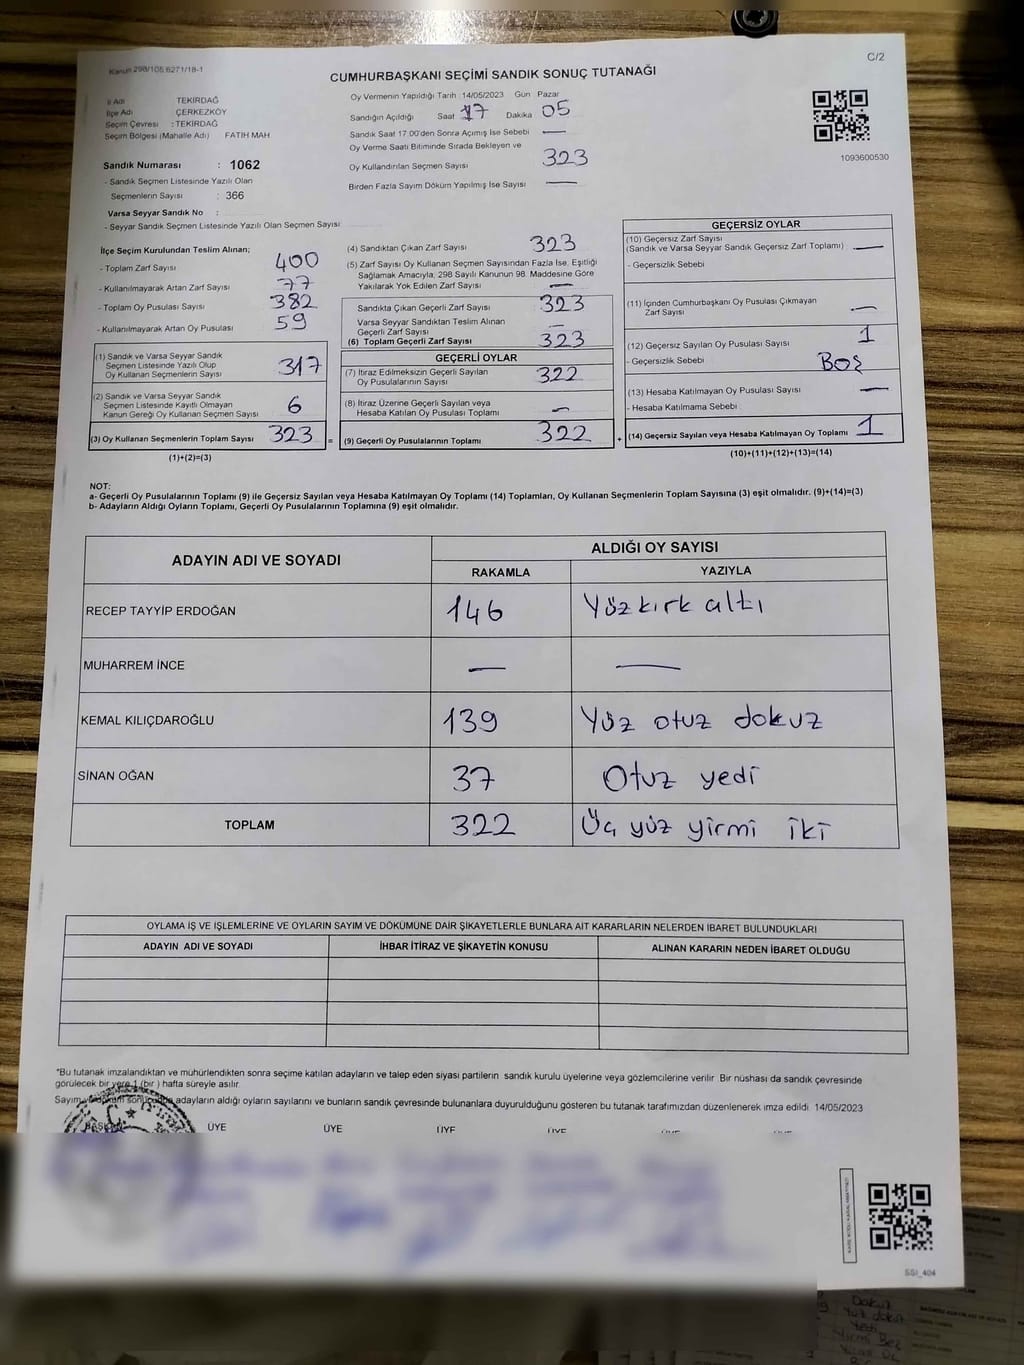 Kanun 298/105,6271/18-1
C/2
CUMHURBAŞKANI SEÇİMİ SANDIK SONUÇ TUTANAĞI
İl Adı TEKİRDAĞ
İlçe Adı ÇERKEZKÖY
Seçim Çevresi : TEKİRDAĞ
Seçim Bölgesi (Mahalle Adı) FATİH MAH
Oy Vermenin Yapıldığı Tarih 14/05/2023 Gün Pazar
Sandığın Açıldığı Saat 17 Dakika 05
Sandık Saat 17.00'den Sonra Açımış İse Sebebi —
Oy Verme Saati Bitiminde Sırada Bekleyen ve
Oy Kullandırılan Seçmen Sayısı 323
Birden Fazla Sayım Döküm Yapılmış İse Sayısı —
1093600530
Sandık Numarası : 1062
- Sandık Seçmen Listesinde Yazılı Olan
Seçmenlerin Sayısı : 366
Varsa Seyyar Sandık No :
- Seyyar Sandık Seçmen Listesinde Yazılı Olan Seçmen Sayısı
İlçe Seçim Kurulundan Teslim Alınan;
- Toplam Zarf Sayısı 400
- Kullanılmayarak Artan Zarf Sayısı 77
- Toplam Oy Pusulası Sayısı 382
- Kullanılmayarak Artan Oy Pusulası 59
(1) Sandık ve Varsa Seyyar Sandık
Seçmen Listesinde Yazılı Olup
Oy Kullanan Seçmenlerin Sayısı 317
(2) Sandık ve Varsa Seyyar Sandık
Seçmen Listesinde Kayıtlı Olmayan
Kanun Gereği Oy Kullanan Seçmen Sayısı 6
(3) Oy Kullanan Seçmenlerin Toplam Sayısı 323 =
(1)+(2)=(3)
(4) Sandıktan Çıkan Zarf Sayısı 323
(5) Zarf Sayısı Oy Kullanan Seçmen Sayısından Fazla İse, Eşitliği
Sağlamak Amacıyla, 298 Sayılı Kanunun 98. Maddesine Göre
Yakılarak Yok Edilen Zarf Sayısı —
Sandıkta Çıkan Geçerli Zarf Sayısı 323
Varsa Seyyar Sandıktan Teslim Alınan
Geçerli Zarf Sayısı —
(6) Toplam Geçerli Zarf Sayısı 323
GEÇERLİ OYLAR
(7) İtiraz Edilmeksizin Geçerli Sayılan
Oy Pusulalarının Sayısı 322
(8) İtiraz Üzerine Geçerli Sayılan veya
Hesaba Katılan Oy Pusulası Toplamı —
(9) Geçerli Oy Pusulalarının Toplamı 322 +
GEÇERSİZ OYLAR
(10) Geçersiz Zarf Sayısı
(Sandık ve Varsa Seyyar Sandık Geçersiz Zarf Toplamı) —
- Geçersizlik Sebebi
(11) İçinden Cumhurbaşkanı Oy Pusulası Çıkmayan
Zarf Sayısı —
(12) Geçersiz Sayılan Oy Pusulası Sayısı 1
- Geçersizlik Sebebi BOŞ
(13) Hesaba Katılmayan Oy Pusulası Sayısı —
- Hesaba Katılmama Sebebi
(14) Geçersiz Sayılan veya Hesaba Katılmayan Oy Toplamı 1
(10)+(11)+(12)+(13)=(14)
NOT:
a- Geçerli Oy Pusulalarının Toplamı (9) ile Geçersiz Sayılan veya Hesaba Katılmayan Oy Toplamı (14) Toplamları, Oy Kullanan Seçmenlerin Toplam Sayısına (3) eşit olmalıdır. (9)+(14)=(3)
b- Adayların Aldığı Oyların Toplamı, Geçerli Oy Pusulalarının Toplamına (9) eşit olmalıdır.
ADAYIN ADI VE SOYADI ALDIĞI OY SAYISI
RAKAMLA YAZIYLA
RECEP TAYYİP ERDOĞAN 146 Yüz kırk altı
MUHARREM İNCE — —
KEMAL KILIÇDAROĞLU 139 Yüz otuz dokuz
SİNAN OĞAN 37 Otuz yedi
TOPLAM 322 Üç yüz yirmi iki
OYLAMA İŞ VE İŞLEMLERİNE VE OYLARIN SAYIM VE DÖKÜMÜNE DAİR ŞİKAYETLERLE BUNLARA AİT KARARLARIN NELERDEN İBARET BULUNDUKLARI
ADAYIN ADI VE SOYADI İHBAR İTİRAZ VE ŞİKAYETİN KONUSU ALINAN KARARIN NEDEN İBARET OLDUĞU
"Bu tutanak imzalandıktan ve mühürlendikten sonra seçime katılan adayların ve talep eden siyasi partilerin sandık kurulu üyelerine veya gözlemcilerine verilir. Bir nüshası da sandık çevresinde
görülecek bir yere 1 (bir ) hafta süreyle asılır.
Sayım adayların aldığı oyların sayılarını ve bunların sandık çevresinde bulunanlara duyurulduğunu gösteren bu tutanak tarafımızdan düzenlenerek imza edildi. 14/05/2023
BAŞKAN ÜYE ÜYE ÜYE ÜYE ÜYE ÜYE
SSI_404